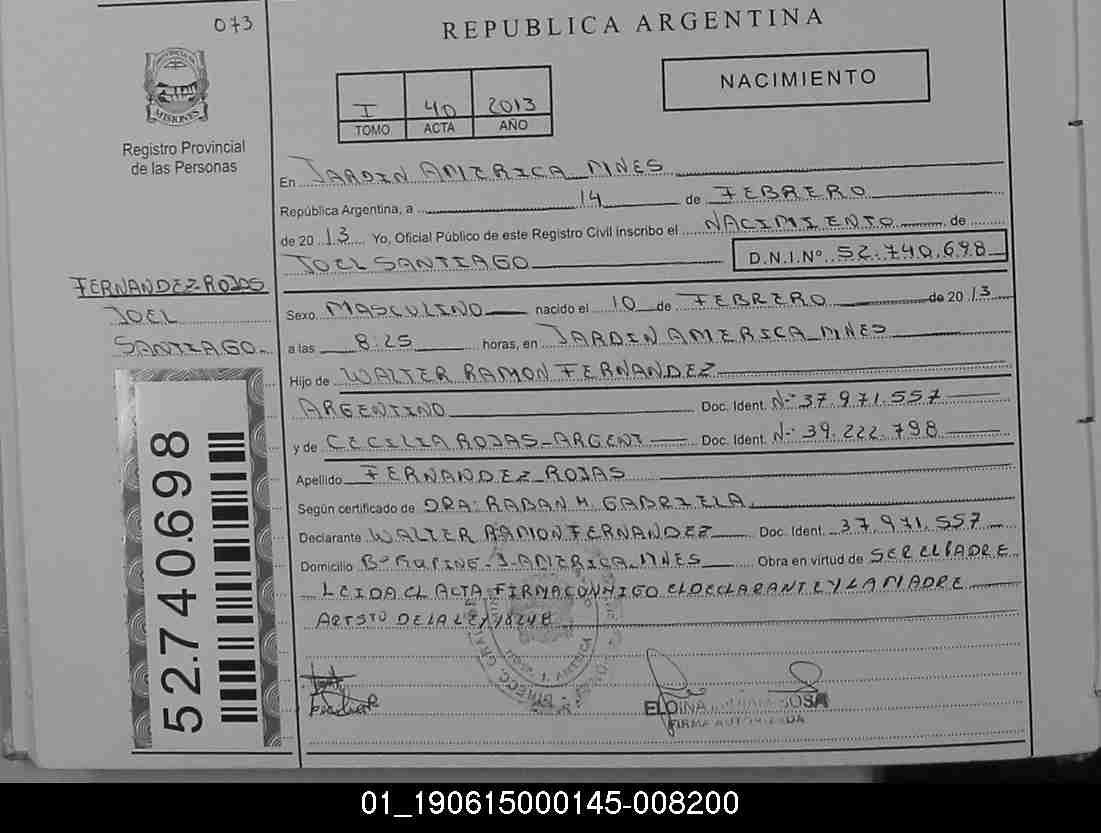 073
REPUBLICA ARGENTINA
PROVINCIA DE
MISIONES
I 40 2013
TOMO ACTA AÑO
NACIMIENTO
Registro Provincial
de las Personas
En JARDIN AMERICA MNES
República Argentina, a 14 de FEBRERO
de 2013 Yo, Oficial Público de este Registro Civil inscribo el NACIMIENTO de
JOEL SANTIAGO D.N.I.Nº 52.740.698
FERNANDEZ ROJAS
JOEL
SANTIAGO
Sexo MASCULINO nacido el 10 de FEBRERO de 2013
a las 8:25 horas, en JARDIN AMERICA MNES
Hijo de WALTER RAMON FERNANDEZ
ARGENTINO Doc. Ident. Nº 37.971.557
y de CECILIA ROJAS-ARGENT Doc. Ident. Nº 39.222.798
Apellido FERNANDEZ ROJAS
Según certificado de DRA: RABAN M. GABRIELA
Declarante WALTER RAMON FERNANDEZ Doc. Ident. 37.971.557
Domicilio Bº J. AMERICA MNES Obra en virtud de SER EL PADRE
LEIDA EL ACTA FIRMA CONMIGO EL DECLARANTE Y LA MADRE
ART 5TO DE LA LEY 18248
52.740.698
ELOINA SOSA
FIRMA AUTORIZADA
01_190615000145-008200